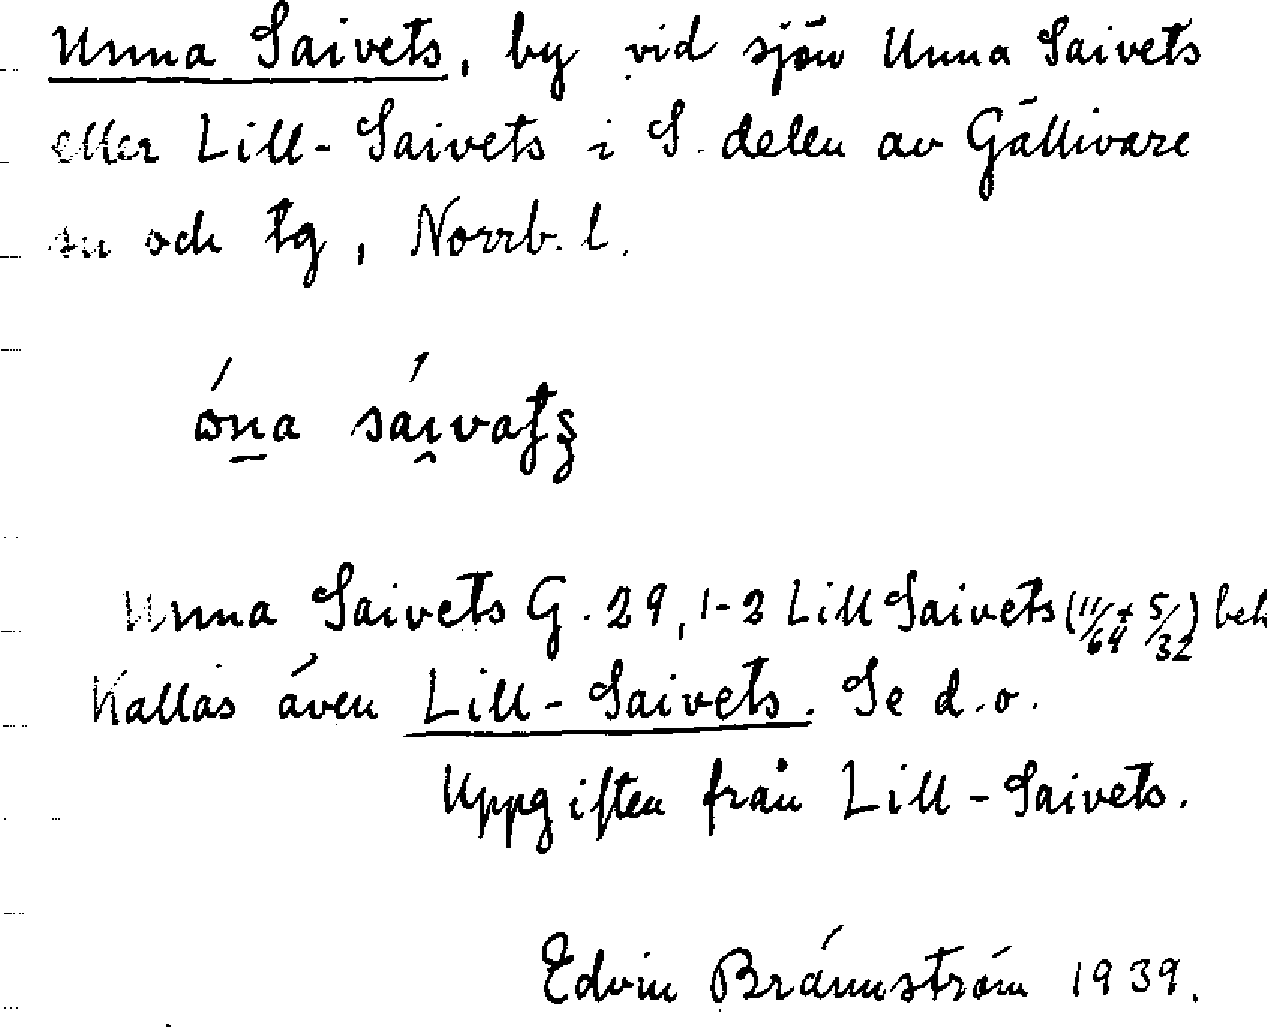 Unna Saivets, by vid sjön Unna Saivets
eller Lill-Saivets i S. delen av Gällivare
sn och tg, Norrb. l.
ȯ́na sái̯vats
Unna Saivets G. 29, 1-2 Lill Saivets (11/64 + 5/32) beh
Kallas även Lill-Saivets. Se d.o.
Uppgiften från Lill-Saivets.
Edvin Brännström 1939.